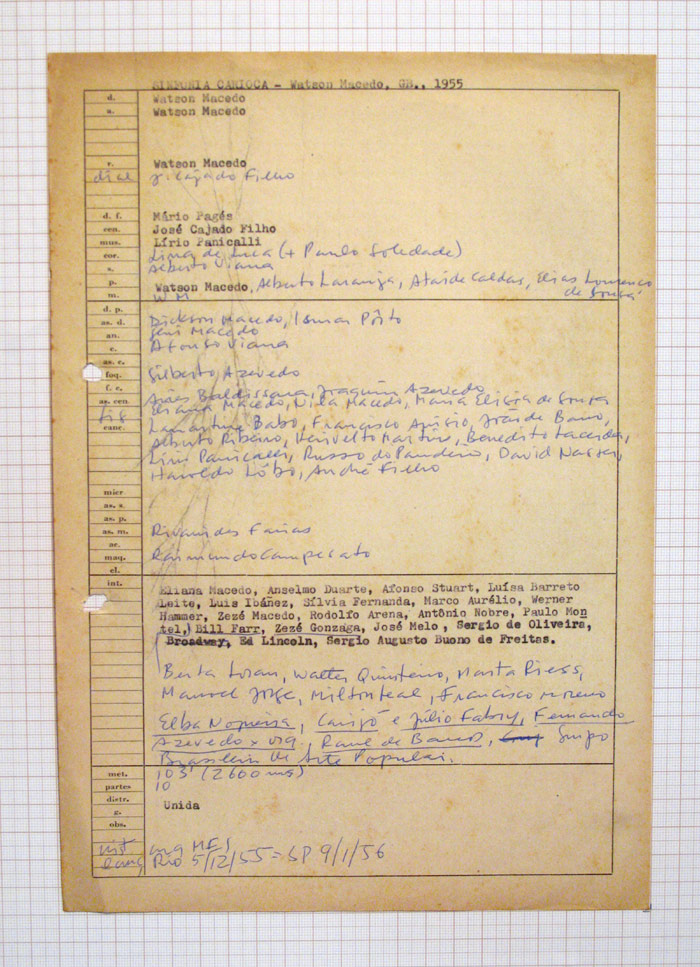 SINFONIA CARIOCA - Watson Macedo, GB., 1955
d. Watson Macedo
a. Watson Macedo
r. Watson Macedo
dial J. Cajado Filho
d. f. Mário Pagés
cen. José Cajado Filho
mus. Lírio Panicalli
cor. Lina de Luca (+ Paulo Soledade)
s. Alberto Viana
p. Watson Macedo, Alberto Laranja, Ataíde Caldas, Elias Lourenço
de Sousa
m. W M
d. p.
as. d. Dickson Macedo, Ismar Pôrto
an. Macedo
c. Afonso Viana
as. c.
foq. Gilberto Azevedo
f. c.
as. cen. Baldissara, Joaquim Azevedo
fig Macedo, Nila Macedo, Maria de Sousa
canc. Lamartine Babo, Francisco, João de Barro,
Alberto Ribeiro, Herivelto Martins, Benedito Lacerda,
Lírio Panicalli, Russo do Pandeiro, David Nasser,
Haroldo Lôbo, André Filho
micr
as. s.
as. p.
as. m. Rivanides Farias
ae.
maq. Raimundo Campesato
el.
int. Eliana Macedo, Anselmo Duarte, Afonso Stuart, Luísa Barreto
Leite, Luis Ibáñez, Sílvia Fernanda, Marco Aurélio, Werner
Hammer, Zezé Macedo, Rodolfo Arena, Antônio Nobre, Paulo Mon
tel, Bill Farr, Zezé Gonzaga, José Melo, Sergio de Oliveira,
Broadway, Ed Lincoln, Sergio Augusto Buono de Freitas.
Berta Loran, Walter Quinteiro, Marta Riess,
Manoel Jorge, Milton Leal, Francisco Moreno
Elba Nogueira, Carijó e Júlio Fabry, Fernando
Azevedo, Raul de Barros, Grupo
Brasileiro de Arte Popular.
met. 103' (2600 ms)
partes 10
distr. Unida
g.
obs.
Rio 5/12/55 = SP 9/1/56